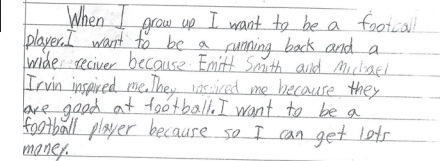 When I grow up I want to be a footcall
player.I want to be a running back and a
wide reciver because Emitt Smith and Michael
Irvin inspired me.They inspired me because they
are good at football.I want to be a
football player because so I can get lots
money.